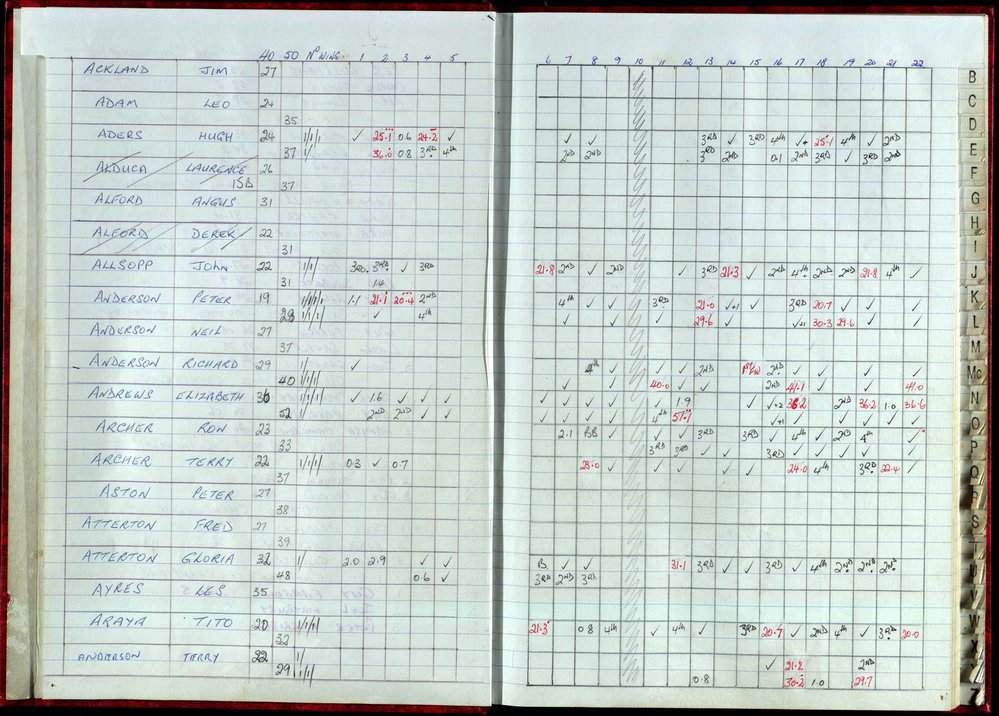 40 50 Nº WINS 1 2 3 4 5 6 7 8 9 10 11 12 13 14 15 16 17 18 19 20 21 22
ACKLAND JIM 27
ADAM LEO 24
35
ADERS HUGH 24 1/1/1 ✓ 25.1 0.6 24.2 ✓ ✓ ✓ 3RD ✓ 3RD 4th ✓+ 25.1 4th ✓ 2ND
37 1/ 36.0 0.8 3RD 4th 2ND 2ND 3RD 2ND 0.1 2ND 3RD ✓ 3RD 2ND
ALDUCA LAURENCE 26
ISB 37
ALFORD ANGUS 31
ALFORD DEREK 22
31
ALLSOPP John 22 1/1/ 3RD 3RD ✓ 3RD 21.8 2ND ✓ 2ND ✓ 3RD 21.3 ✓ 2ND 4th 2ND 2ND 21.8 4th ✓
31 14
ANDERSON PETER 19 1.1 21.1 20.4 2ND 4th ✓ ✓ 3RD 21.0 ✓+1 3RD 20.7 ✓ ✓ ✓
28 ✓ 4th ✓ ✓ ✓ 29.6 ✓ ✓+1 30.3 29.6 ✓ ✓
ANDERSON NEIL 27
37
ANDERSON RICHARD 29 ✓ 4th ✓ ✓ ✓ 2ND 2ND ✓ ✓ ✓ ✓ ✓
40 1/1/1/ ✓ ✓ 40.0 ✓ ✓ 2ND 41.1 ✓ ✓ 41.0
ANDREWS ELIZABETH 36 ✓ 1.6 ✓ ✓ ✓ ✓ ✓ ✓ ✓ ✓ 1.9 ✓ ✓+2 36.2 2ND 36.2 1.0 36.6
52 2ND 2ND ✓ ✓ ✓ ✓ ✓ ✓ 4th 51.1 ✓+1 ✓ ✓ ✓ ✓
ARCHER RON 23 2.1 BB ✓ ✓ ✓ 3RD 3RD ✓ 4th ✓ 2ND 4th ✓
33 3RD 3RD ✓ ✓ 3RD ✓ ✓ ✓ ✓ ✓
ARCHER TERRY 22 1/1/1 0.3 ✓ 0.7 23.0 ✓ ✓ ✓ ✓ ✓ 24.0 4th 3RD 22.4 ✓
37
ASTON PETER 27
38
ATTERTON FRED 27
39
ATTERTON GLORIA 32 1/ 2.0 2.9 ✓ ✓ B ✓ ✓ 31.1 3RD ✓ ✓ 3RD ✓ 4th 2ND 2ND 2ND
48 0.6 ✓ 3RD 2ND 3RD
AYRES LES. 35
ARAYA TITO 20 1/1/1/ 21.3 0.8 4th ✓ 4th ✓ 3RD 20.7 ✓ 2ND 4th ✓ 3RD 20.0
32
ANDERSON TERRY 22 ✓ 21.2 2ND
29 0.8 30.2 1.0 29.7
B
C
D
E
F
G
H
I
J
K
L
M
Mc
N
O
P
Q
S
V
W
X